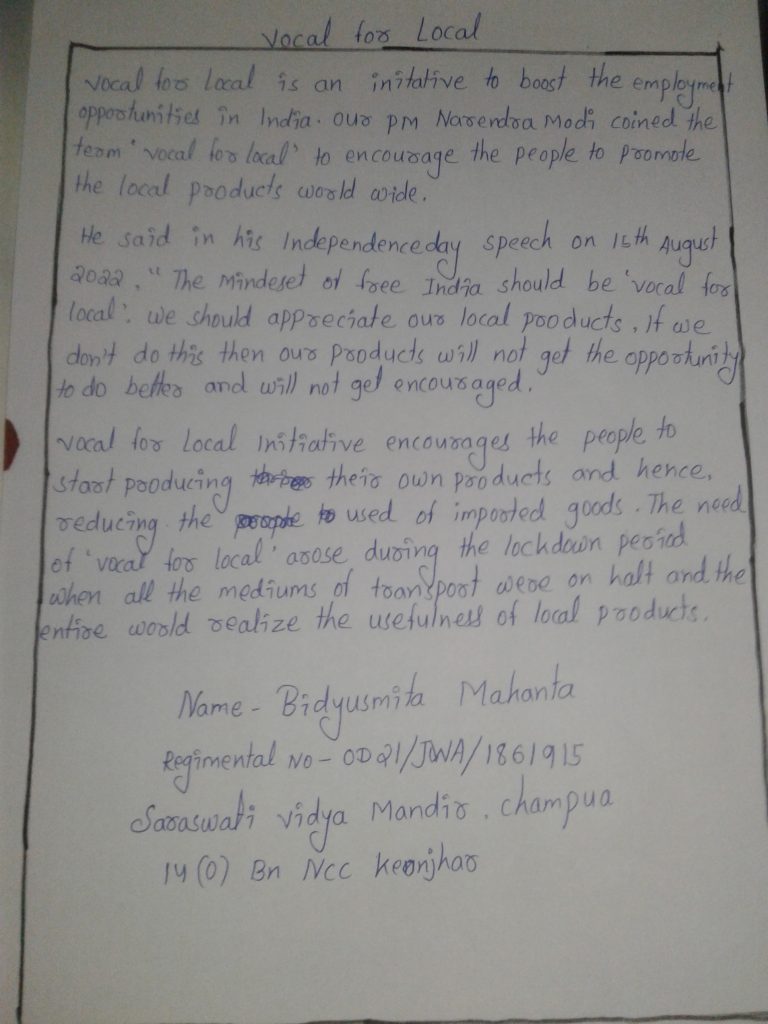 Vocal for Local
Vocal for Local is an initative to boost the employment
opportunities in India. Our PM Narendra Modi coined the
term 'vocal for local' to encourage the people to promote
the local products world wide.
He said in his Independenceday speech on 15th August
2022, "The Mindeset of free India should be 'vocal for
local'. we should appreciate our local products, If we
don't do this then our products will not get the opportunity
to do better and will not get encouraged.
Vocal for Local Initiative encourages the people to
start producing their own products and hence,
reducing the used of imported goods. The need
of 'vocal for local' arose during the lockdown period
when all the mediums of transport were on halt and the
entire world realize the usefulness of local products.
Name - Bidyusmita Mahanta
Regimental No - OD21/JWA/1861915
Saraswati Vidya Mandir, Champua
14 (O) Bn NCC Keonjhar